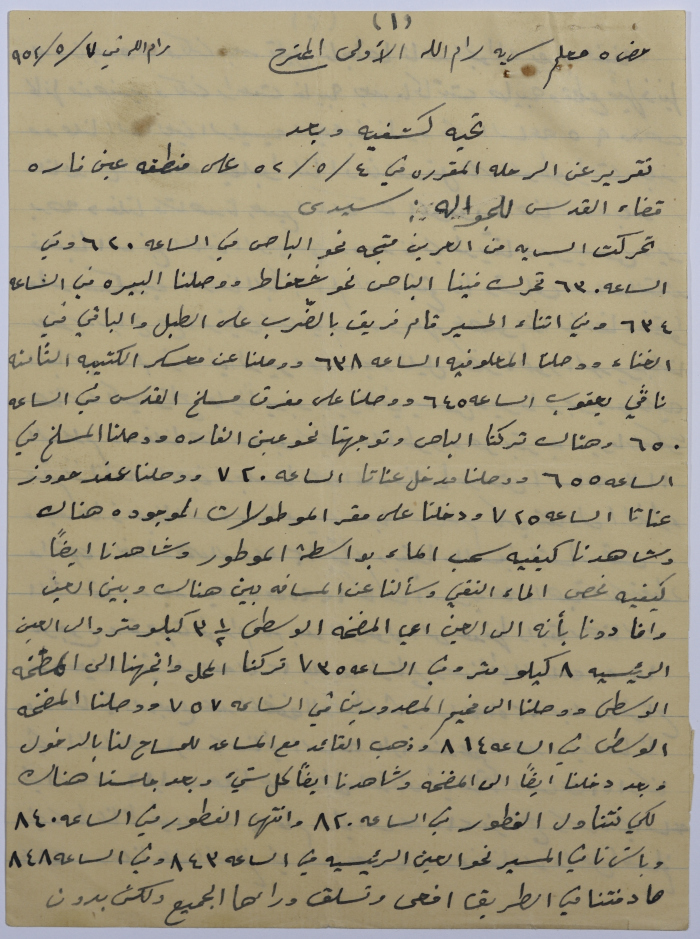 (١)
حضرة معلم سريه رام الله الأولى المحترم رام الله في ٧/٥/٩٥٢
تحيه كشفيه وبعد
تقرير عن الرحله المقرره في ٤/٥/٥٢ على منطقه عين فاره
قضاء القدس للجواله : سيدي
تحركت السريه من العرين متجه نحو الباص في الساعه ٦٢٠ وفي
الساعه ٦٣٠ تحرك فينا الباص نحو شعفاط ووصلنا البيره في الساعه
٦٣٤ وفي اثناء المسير قام فريق بالضّرب على الطبل والباقي في
الغناء ووصلنا المعلوفيه الساعه ٦٣٨ ووصلنا عن معسكر الكتيبه الثّامنه
نافي يعقوب الساعه ٦٤٥ ووصلنا على مفرق مسلخ القدس في الساعه
٦٥٠ وهناك تركنا الباص وتوجهنا نحو عين الفاره ووصلنا المسلخ في
الساعه ٦٥٥ ووصلنا مدخل عناتا الساعه ٧٢٠ ووصلنا عند حووز
عناتا الساعه ٧٢٥ ودخلنا على مقر الموطولات الموجوده هناك
وشاهدنا كيفيه سحب الماء بواسطة الموطور وشاهدنا ايضاً
كيفيه فحص الماء النقي وسألنا عن المسافه بين هناك وبين العين
وافادونا بأنه الى العين اعي المضخه الوسطى ٣ ١/٢ كيلو متر والى العين
الرئيسيه ٨ كيلو متر وفي الساعه ٧٣٥ تركنا المحل واتجهنا الى المضخه
الوسطى ووصلنا الى مخيم المصدورين في الساعه ٧٥٧ ووصلنا المضخه
الوسطى في الساعه ٨١٤ وذهب القائد مع المساعد للسماح لنا بالدخول
وبعد دخلنا ايضاً الى المضخه وشاهدنا ايضاً كل شيء وبعد جلسنا هناك
لكي نتناول الفطور في الساعه ٨٢٠ وانتهى الفطور في الساعه ٨٤٠
وباشرنا في المسير نحو العين الرئيسيه في الساعه ٨٤٣ وفي الساعه ٨٤٨
صادفتنا في الطريق افعى وتسلق وراءها الجميع ولكن بدون